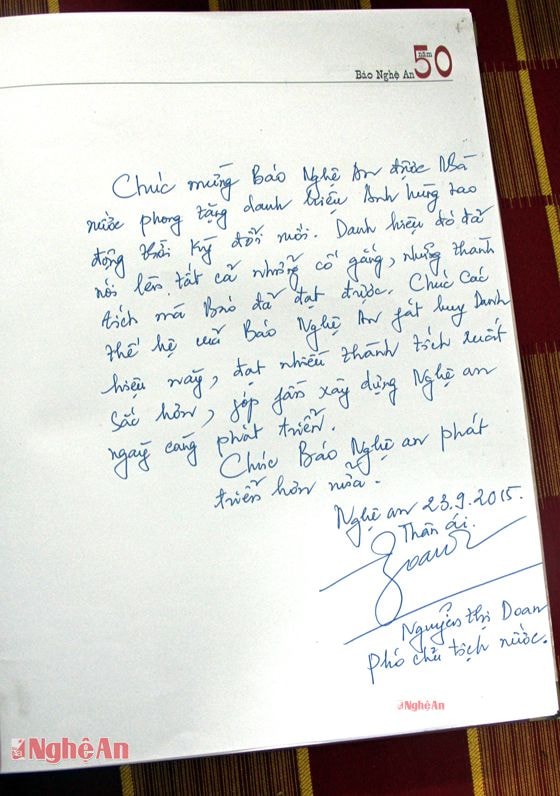 năm
Báo Nghệ An 50
Chúc mừng Báo Nghệ An được Nhà
nước phong tặng danh hiệu Anh hùng lao
động thời kỳ đổi mới. Danh hiệu đó đã
nói lên tất cả những cố gắng, những thành
tích mà Báo đã đạt được. Chúc các
thế hệ của Báo Nghệ An fát huy Danh
hiệu này, đạt nhiều thành tích xuất
sắc hơn, góp fần xây dựng Nghệ an
ngày càng phát triển.
Chúc Báo Nghệ an phát
triển hơn nữa.
Nghệ an 23.9.2015.
Thân ái.
Doan
Nguyễn thị Doan
Phó chủ tịch nước.
Nghệ An
Nghệ An